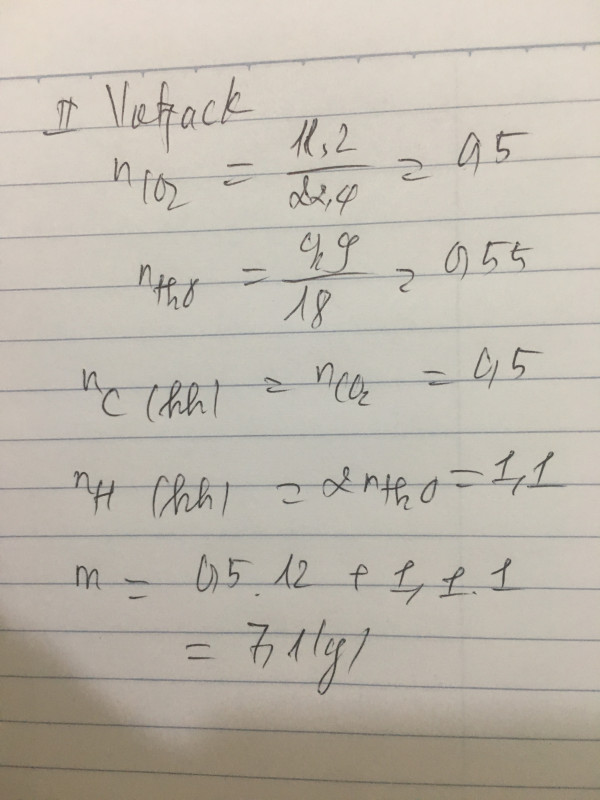 II Vietjack
nCO2 = 11,2 / 22,4 = 0,5
nH2O = 9,9 / 18 = 0,55
nC (hh) = nCO2 = 0,5
nH (hh) = 2nH2O = 1,1
m = 0,5.12 + 1,1.1
= 7,1(g)